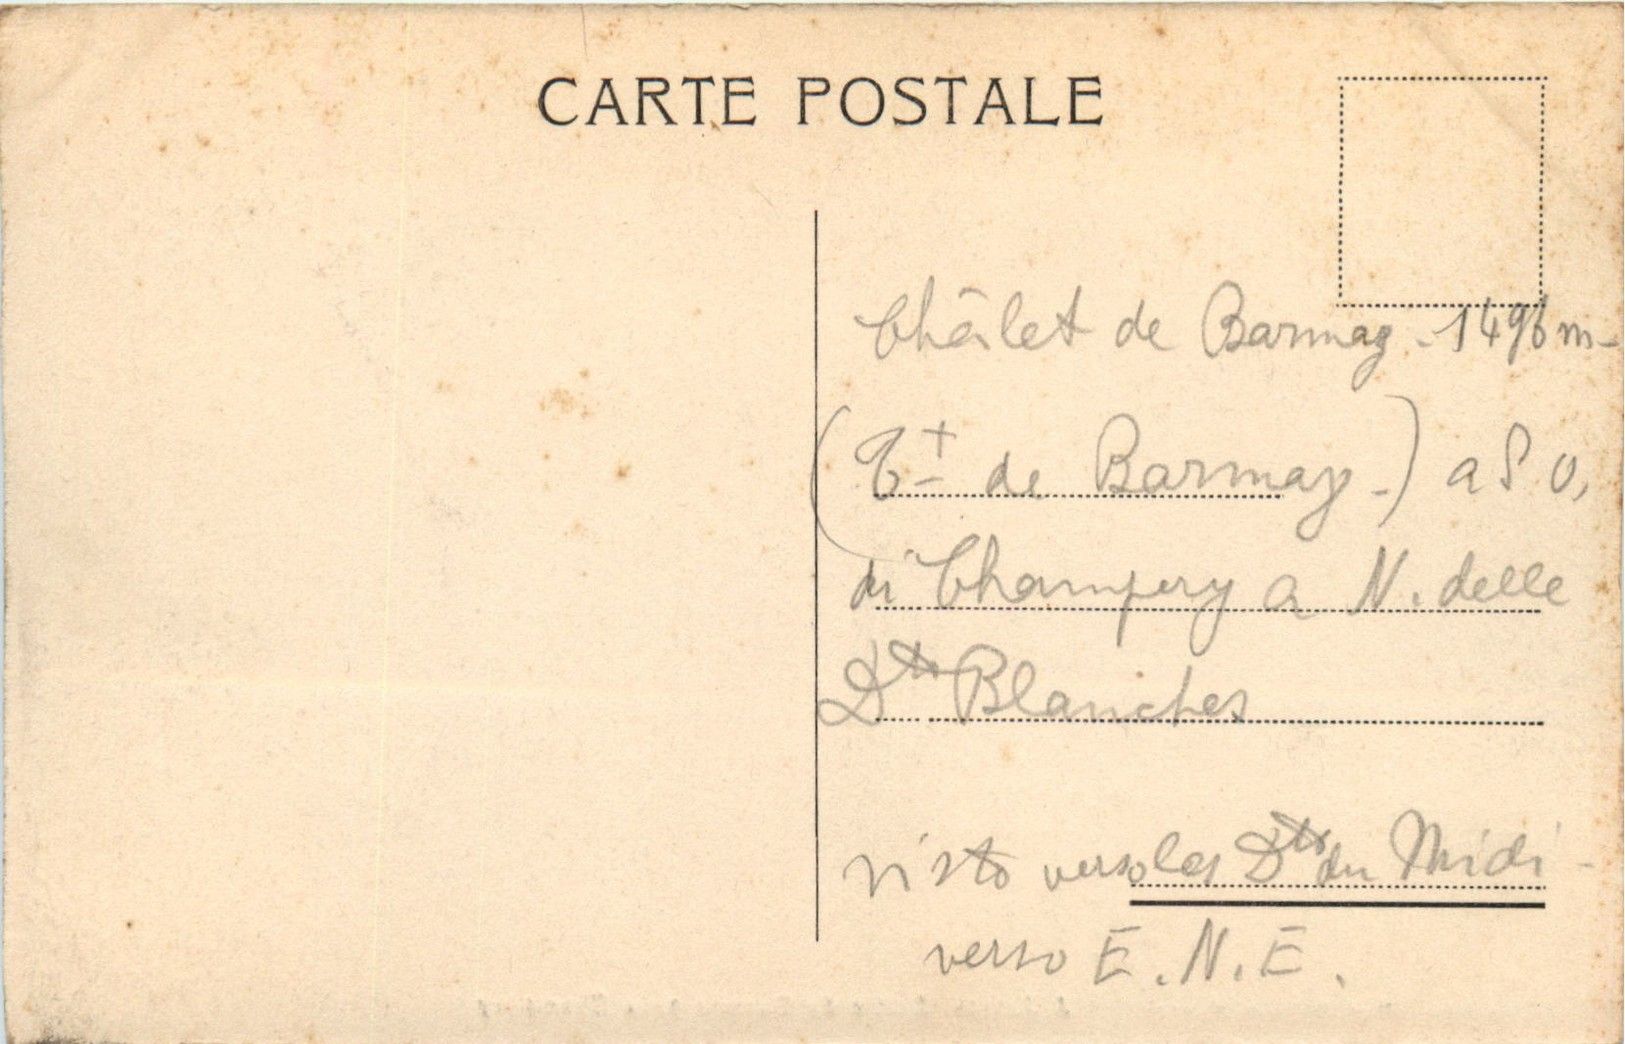 CARTE POSTALE
Châlet de Barmaz - 1496 m -
(Ct de Barmaz -) a S O,
di Champery a N. delle
Dts Blanches
visto verso les Dts du Midi -
verso E. N. E.